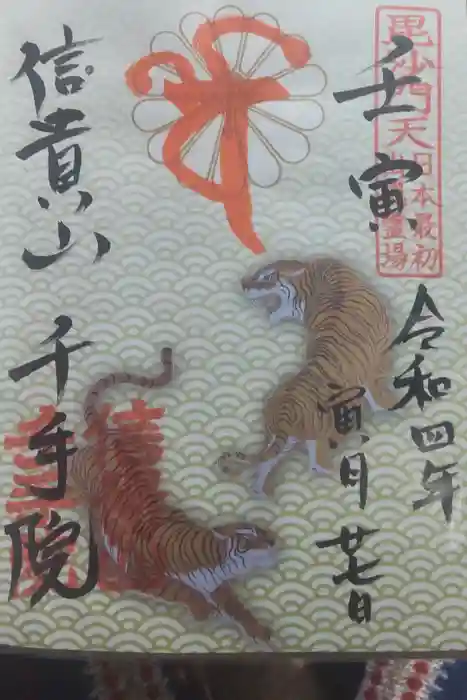 毘沙門天
日本最初
壬寅
令和四年
寅月廿七日
信貴山
千手院